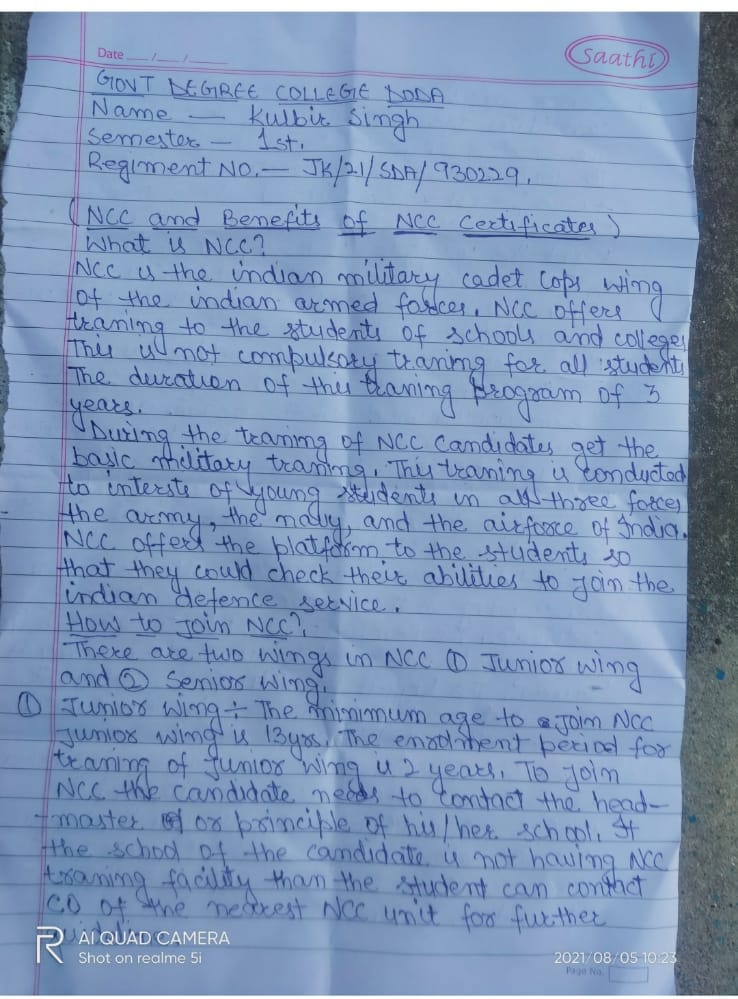 Date __/__/____
Saathi
GOVT DEGREE COLLEGE DODA
Name — Kulbir Singh
Semester — 1st.
Regiment NO. — JK/21/SDA/930229.
(NCC and Benefits of NCC Certificates)
What is NCC?
NCC is the indian military cadet Cops wing
of the indian armed forces. NCC offers
traning to the students of schools and colleges
This is not compulsory traning for all students
The duration of this traning program of 3
years.
During the traning of NCC candidates get the
basic military traning. This traning is conducted
to intersts of young students in all three forces
the army, the navy, and the airforce of India.
NCC offers the platform to the students so
that they could check their abilities to join the
indian defence service.
How to join NCC?
There are two wings in NCC ① Junior wing
and ② Senior wing.
① Junior wing ÷ The minimum age to join NCC
Junior wing is 13yrs. The enrolment period for
traning of Junior wing is 2 years. To join
NCC the candidate needs to contact the head-
-master or principle of his/her school. If
the school of the candidate is not having NCC
traning facility than the student can contact
CO of the nearest NCC unit for further
AI QUAD CAMERA
Shot on realme 5i
2021/08/05 10:23
Page No.